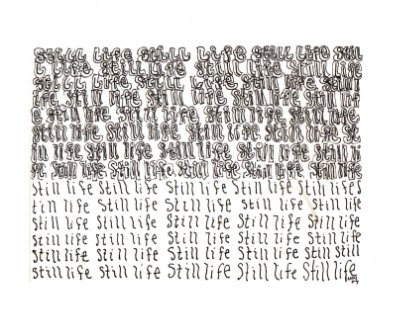 Still Life Still Life Still Life Still
l Life Still Life Still Life Still Life
Still Life Still Life Still Life Still
ife Still Life Still Life Still Lif
e Still Life Still Life Still Life
Still Life Still Life Still Life Still
ll Life Still Life Still Life Still
Life Still Life Still Life Still Life
Still life Still life Still life Still life Still lifes
till life Still life Still life Still life Still life
Still life Still life Still life Still life Still life
Still life Still life Still life Still life Still life
Still life Still life Still life Still life Still
Still life Still life Still life Still life Still life